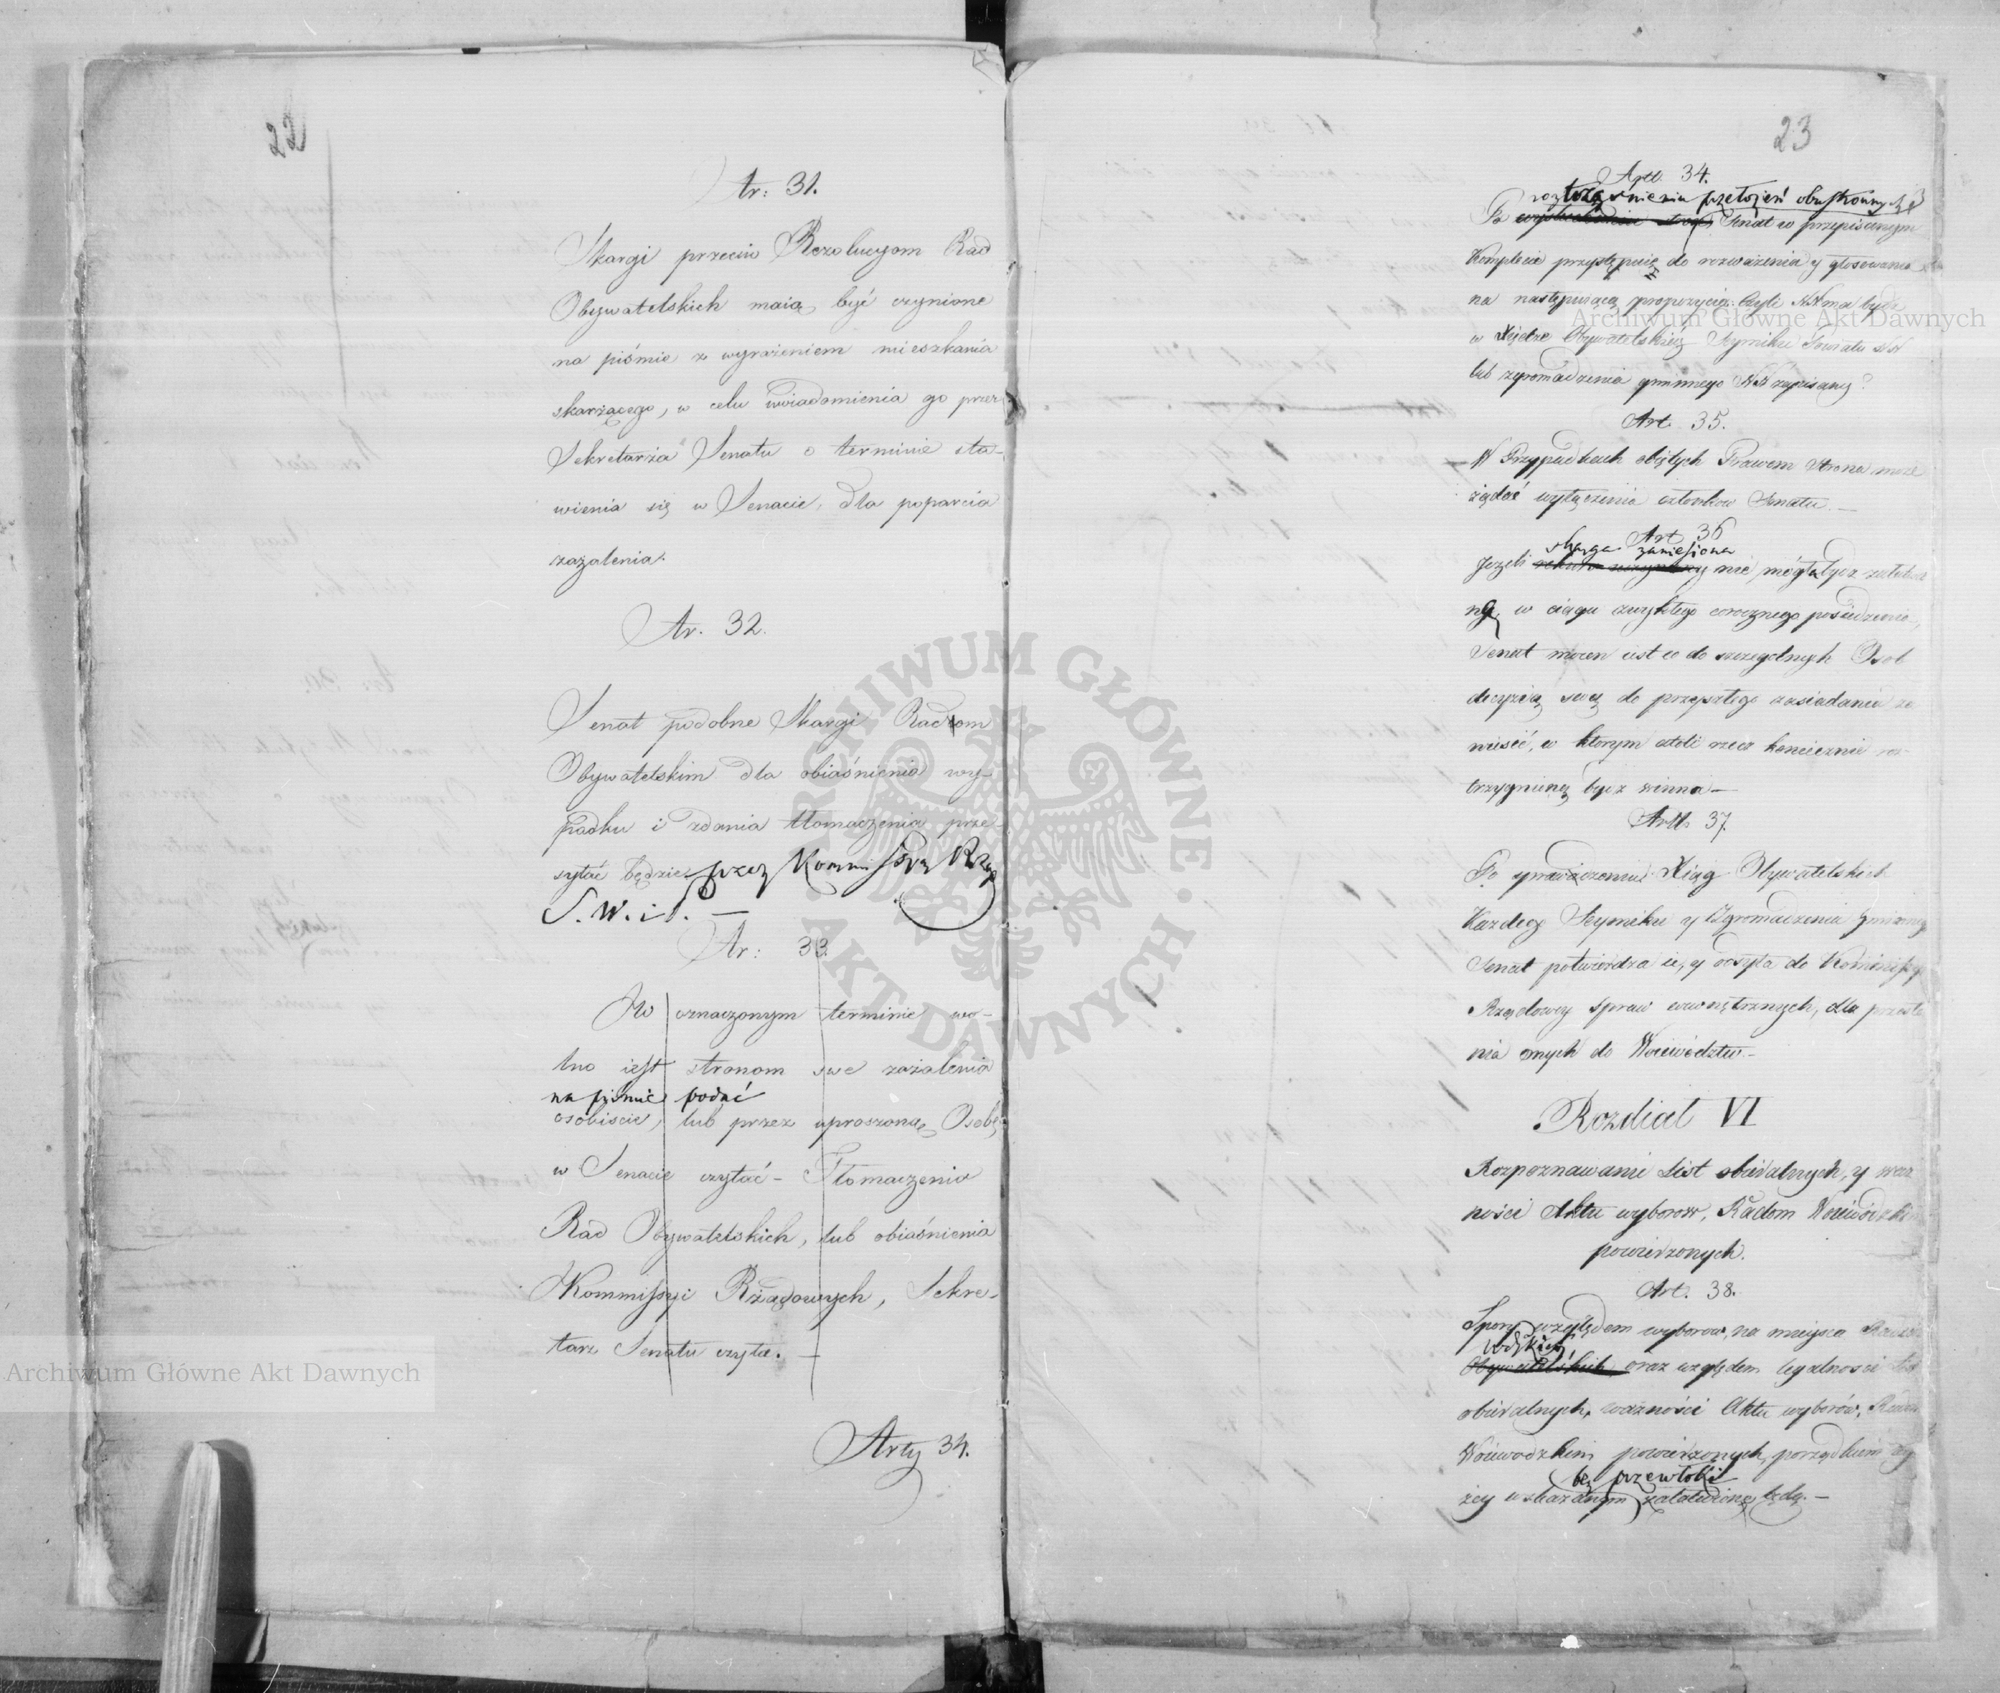 22
Ar: 31.
Skargi przeciw Rezolucyom Rad
Obywatelskich maią być czynione
na piśmie z wyrażeniem mieszkania
skarżącego, w celu uwiadomienia go przez
Sekretarza Senatu o terminie sta-
wienia się w Senacie, dla poparcia
zażalenia.
Ar. 32.
Senat podobne Skargi Radom
Obywatelskim dla obiaśnienia wy-
padku i zdania tłomaczenia prze-
syłać będzie przez Kommissyą Rząd
S. W. i P. —
Ar: 33.
W oznaczonym terminie wo-
lno iest stronom swe zażalenia
na piśmie podać
osobiście, lub przez uproszoną Osobę
w Senacie czytać - Tłomaczenia
Rad Obywatelskich, lub obiaśnienia
Kommissyi Rządowych, Sekre-
tarz Senatu czyta. —
Arty 34.
23
Artt. 34.
roztrząśnieniu przełożeń obustronnych
Po Senat w przepisanym
Komplecie przystępuie do rozważenia y głosowania
na następuiącą propozycią: Czyli NN ma bydź
w Xiędze Obywatelskiey Seymiku Powiatu NN
lub zgromadzenia gminnego NN zapisany?
Art. 35.
W Przypadkach obiętych Prawem Strona może
żądać wyłączenia członków Senatu. —
Art. 36
skarga zaniesiona
Jeżeli nie mogła bydź załatwio
ną w ciągu zwykłego corocznego posiedzenia,
Senat mocen iest co do szczegolnych Osob
decyzią swą do przyszłego zasiadania za
wiesić, w ktorym atoli rzecz koniecznie ros-
trzygnioną bydź winna —
Artt. 37.
Po sprawdzeniu Xiąg Obywatelskich
Każdego Seymiku y Zgromadzenia Gminnego
Senat potwierdza ie, y odsyła do Kommissyi
Rządowey Spraw wewnętrznych, dla przesła
nia onych do Woiewództw. —
Rozdiał VI
Rozpoznawanie List obieralnych, y waż
ności Aktu wyborow, Radom Woiewódzkim
powierzonych.
Art. 38.
Spory względem wyborow, na mieysca Radzców
Wdzkich
Obywatelskich oraz względem legalności List
obieralnych, ważności Aktu wyborów, Radom
Woiewodzkim powierzonych, porządkiem wy
bez przewłoki
żey wskazanym załatwione będą. —
Archiwum Główne Akt Dawnych
Archiwum Główne Akt Dawnych
ARCHIWUM GŁÓWNE · AKT DAWNYCH ·